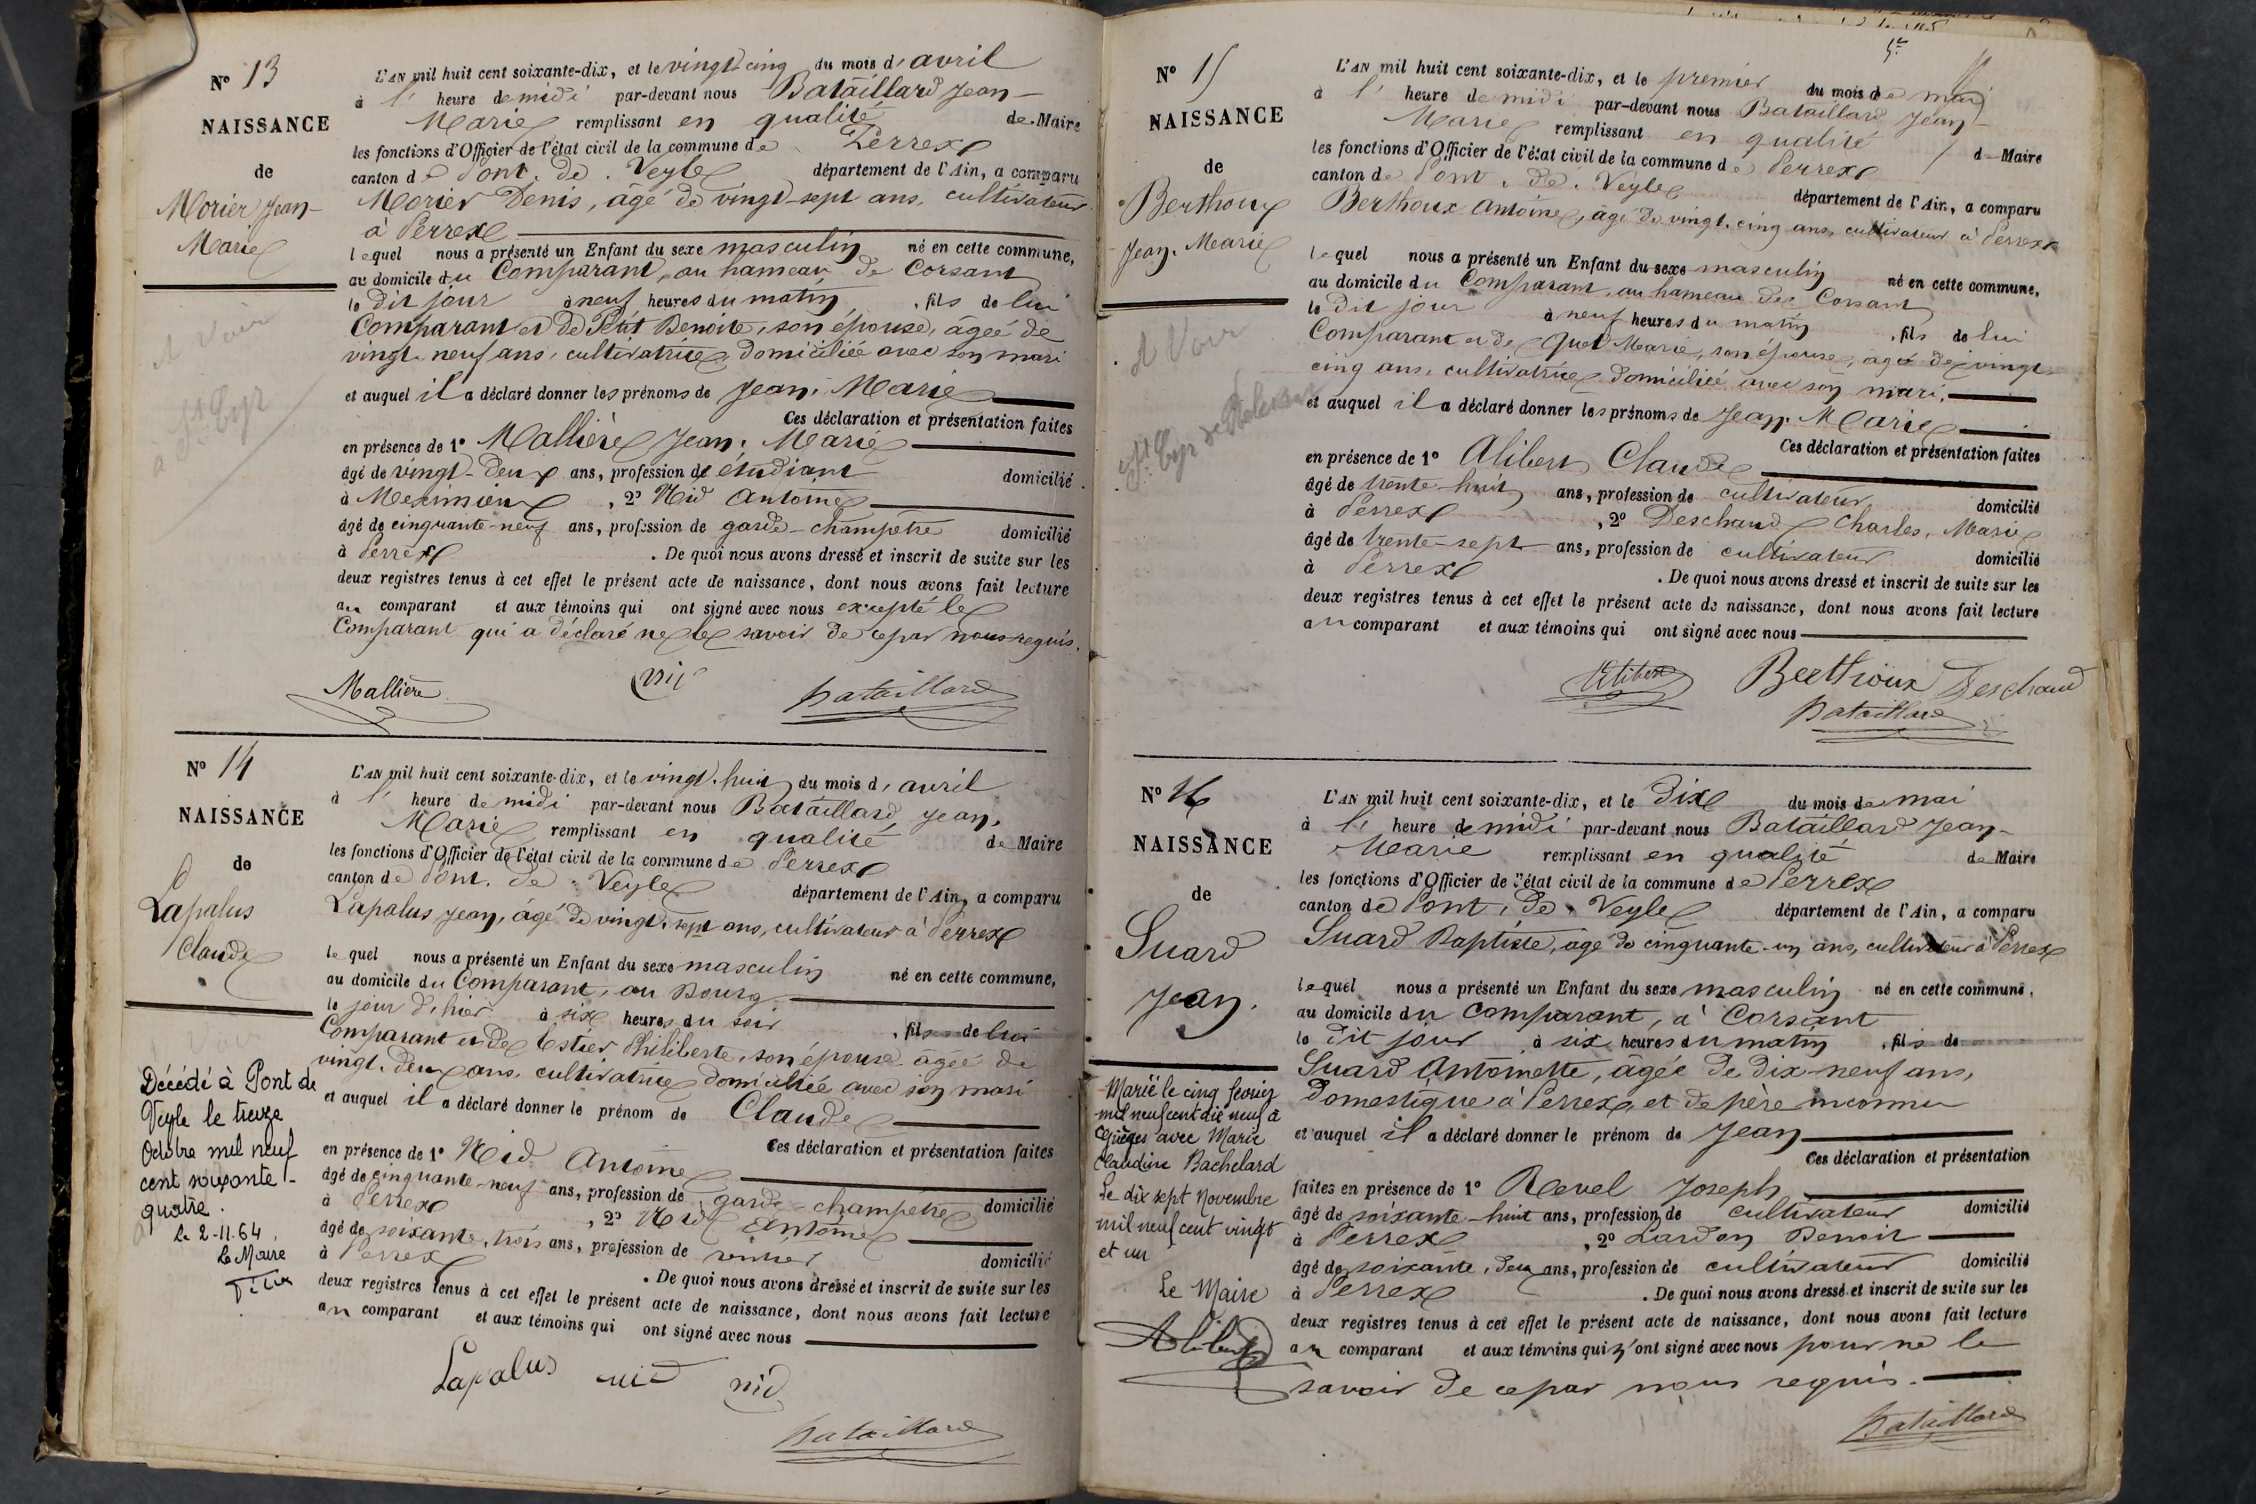 N° 13
NAISSANCE
de
Morier Jean-
Marie
L'AN mil huit cent soixante-dix, et le vingt cinq du mois d'avril
à l' heure de midi par-devant nous Bataillard Jean-
Marie remplissant en qualité de Maire
les fonctions d'Officier de l'état civil de la commune de Perrex
canton de Pont. de. Veyle département de l'Ain, a comparu
Morier Denis, âgé de vingt-sept ans, cultivateur
à Perrex
lequel nous a présenté un Enfant du sexe masculin né en cette commune,
au domicile du Comparant, au hameau de Corsant
le dit jour à neuf heures du matin, fils de lui
Comparant et de Petit Benoite, son épouse, âgée de
vingt-neuf ans, cultivatrice domiciliée avec son mari
et auquel il a déclaré donner les prénoms de Jean. Marie
Ces déclaration et présentation faites
en présence de 1° Mallière Jean. Marie
âgé de vingt-deux ans, profession de étudiant domicilié
à Meximieux, 2° Nid Antoine
âgé de cinquante-neuf ans, profession de garde-champêtre domicilié
à Perrex. De quoi nous avons dressé et inscrit de suite sur les
deux registres tenus à cet effet le présent acte de naissance, dont nous avons fait lecture
au comparant et aux témoins qui ont signé avec nous excepté le
Comparant qui a déclaré ne le savoir de ce par nous requis.
Mallière nid Bataillard
N° 14
NAISSANCE
de
Lapalus
Claude
Décédé à Pont de
Veyle le treize
Octobre mil neuf
cent soixante-
quatre.
le 2-11.64.
Le Maire
L'AN mil huit cent soixante-dix, et le vingt-huit du mois d'avril
à l' heure de midi par-devant nous Bataillard Jean.
Marie remplissant en qualité de Maire
les fonctions d'Officier de l'état civil de la commune de Perrex
canton de Pont. de. Veyle département de l'Ain, a comparu
Lapalus Jean, âgé de vingt-sept ans, cultivateur à Perrex
lequel nous a présenté un Enfant du sexe masculin né en cette commune,
au domicile du Comparant, au Bourg
le jour d'hier à six heures du soir, fils de lui
Comparant et de Estier Philiberte, son épouse âgée de
vingt-deux ans, cultivatrice domiciliée avec son mari
et auquel il a déclaré donner le prénom de Claude
Ces déclaration et présentation faites
en présence de 1° Nid Antoine
âgé de cinquante-neuf ans, profession de garde-champêtre domicilié
à Perrex, 2° Nid Antoine
âgé de soixante-trois ans, profession de domicilié
à Perrex. De quoi nous avons dressé et inscrit de suite sur les
deux registres tenus à cet effet le présent acte de naissance, dont nous avons fait lecture
au comparant et aux témoins qui ont signé avec nous
Lapalus nid nid
Bataillard
N° 15
NAISSANCE
de
Berthoux
Jean. Marie
L'AN mil huit cent soixante-dix, et le premier du mois de mai
à l' heure de midi par-devant nous Bataillard Jean-
Marie remplissant en qualité de Maire
les fonctions d'Officier de l'état civil de la commune de Perrex
canton de Pont. de. Veyle département de l'Ain, a comparu
Berthoux Antoine, âgé de vingt-cinq ans, cultivateur à Perrex
lequel nous a présenté un Enfant du sexe masculin né en cette commune,
au domicile du Comparant, au hameau de Corsant
le dit jour à neuf heures du matin, fils de lui
Comparant et de Marie, son épouse, âgée de vingt-
cinq ans, cultivatrice domiciliée avec son mari.
et auquel il a déclaré donner les prénoms de Jean. Marie
Ces déclaration et présentation faites
en présence de 1° Alibert Claude
âgé de trente-huit ans, profession de cultivateur domicilié
à Perrex, 2° Deschaud Charles. Marie
âgé de trente-sept ans, profession de cultivateur domicilié
à Perrex. De quoi nous avons dressé et inscrit de suite sur les
deux registres tenus à cet effet le présent acte de naissance, dont nous avons fait lecture
au comparant et aux témoins qui ont signé avec nous
Alibert Berthoux Deschaud
Bataillard
N° 16
NAISSANCE
de
Suard
Jean.
Marié le cinq février
mil neuf cent dix neuf à
Grièges avec Marie
Claudine Bachelard
Le dix sept Novembre
mil neuf cent vingt
et un
Le Maire
Alibert
L'AN mil huit cent soixante-dix, et le dix du mois de mai
à l' heure de midi par-devant nous Bataillard Jean-
Marie remplissant en qualité de Maire
les fonctions d'Officier de l'état civil de la commune de Perrex
canton de Pont. de. Veyle département de l'Ain, a comparu
Suard Baptiste, âgé de cinquante-un ans, cultivateur à Perrex
lequel nous a présenté un Enfant du sexe masculin né en cette commune,
au domicile du Comparant, à Corsant
le dit jour à six heures du matin, fils de
Suard Antoinette, âgée de dix-neuf ans,
Domestique à Perrex, et de père inconnu
et auquel il a déclaré donner le prénom de Jean
Ces déclaration et présentation
faites en présence de 1° Revel Joseph
âgé de soixante-huit ans, profession de cultivateur domicilié
à Perrex, 2° Lardon Benoit
âgé de soixante-deux ans, profession de cultivateur domicilié
à Perrex. De quoi nous avons dressé et inscrit de suite sur les
deux registres tenus à cet effet le présent acte de naissance, dont nous avons fait lecture
au comparant et aux témoins qui n'ont signé avec nous pour ne le
savoir de ce par nous requis.
Bataillard